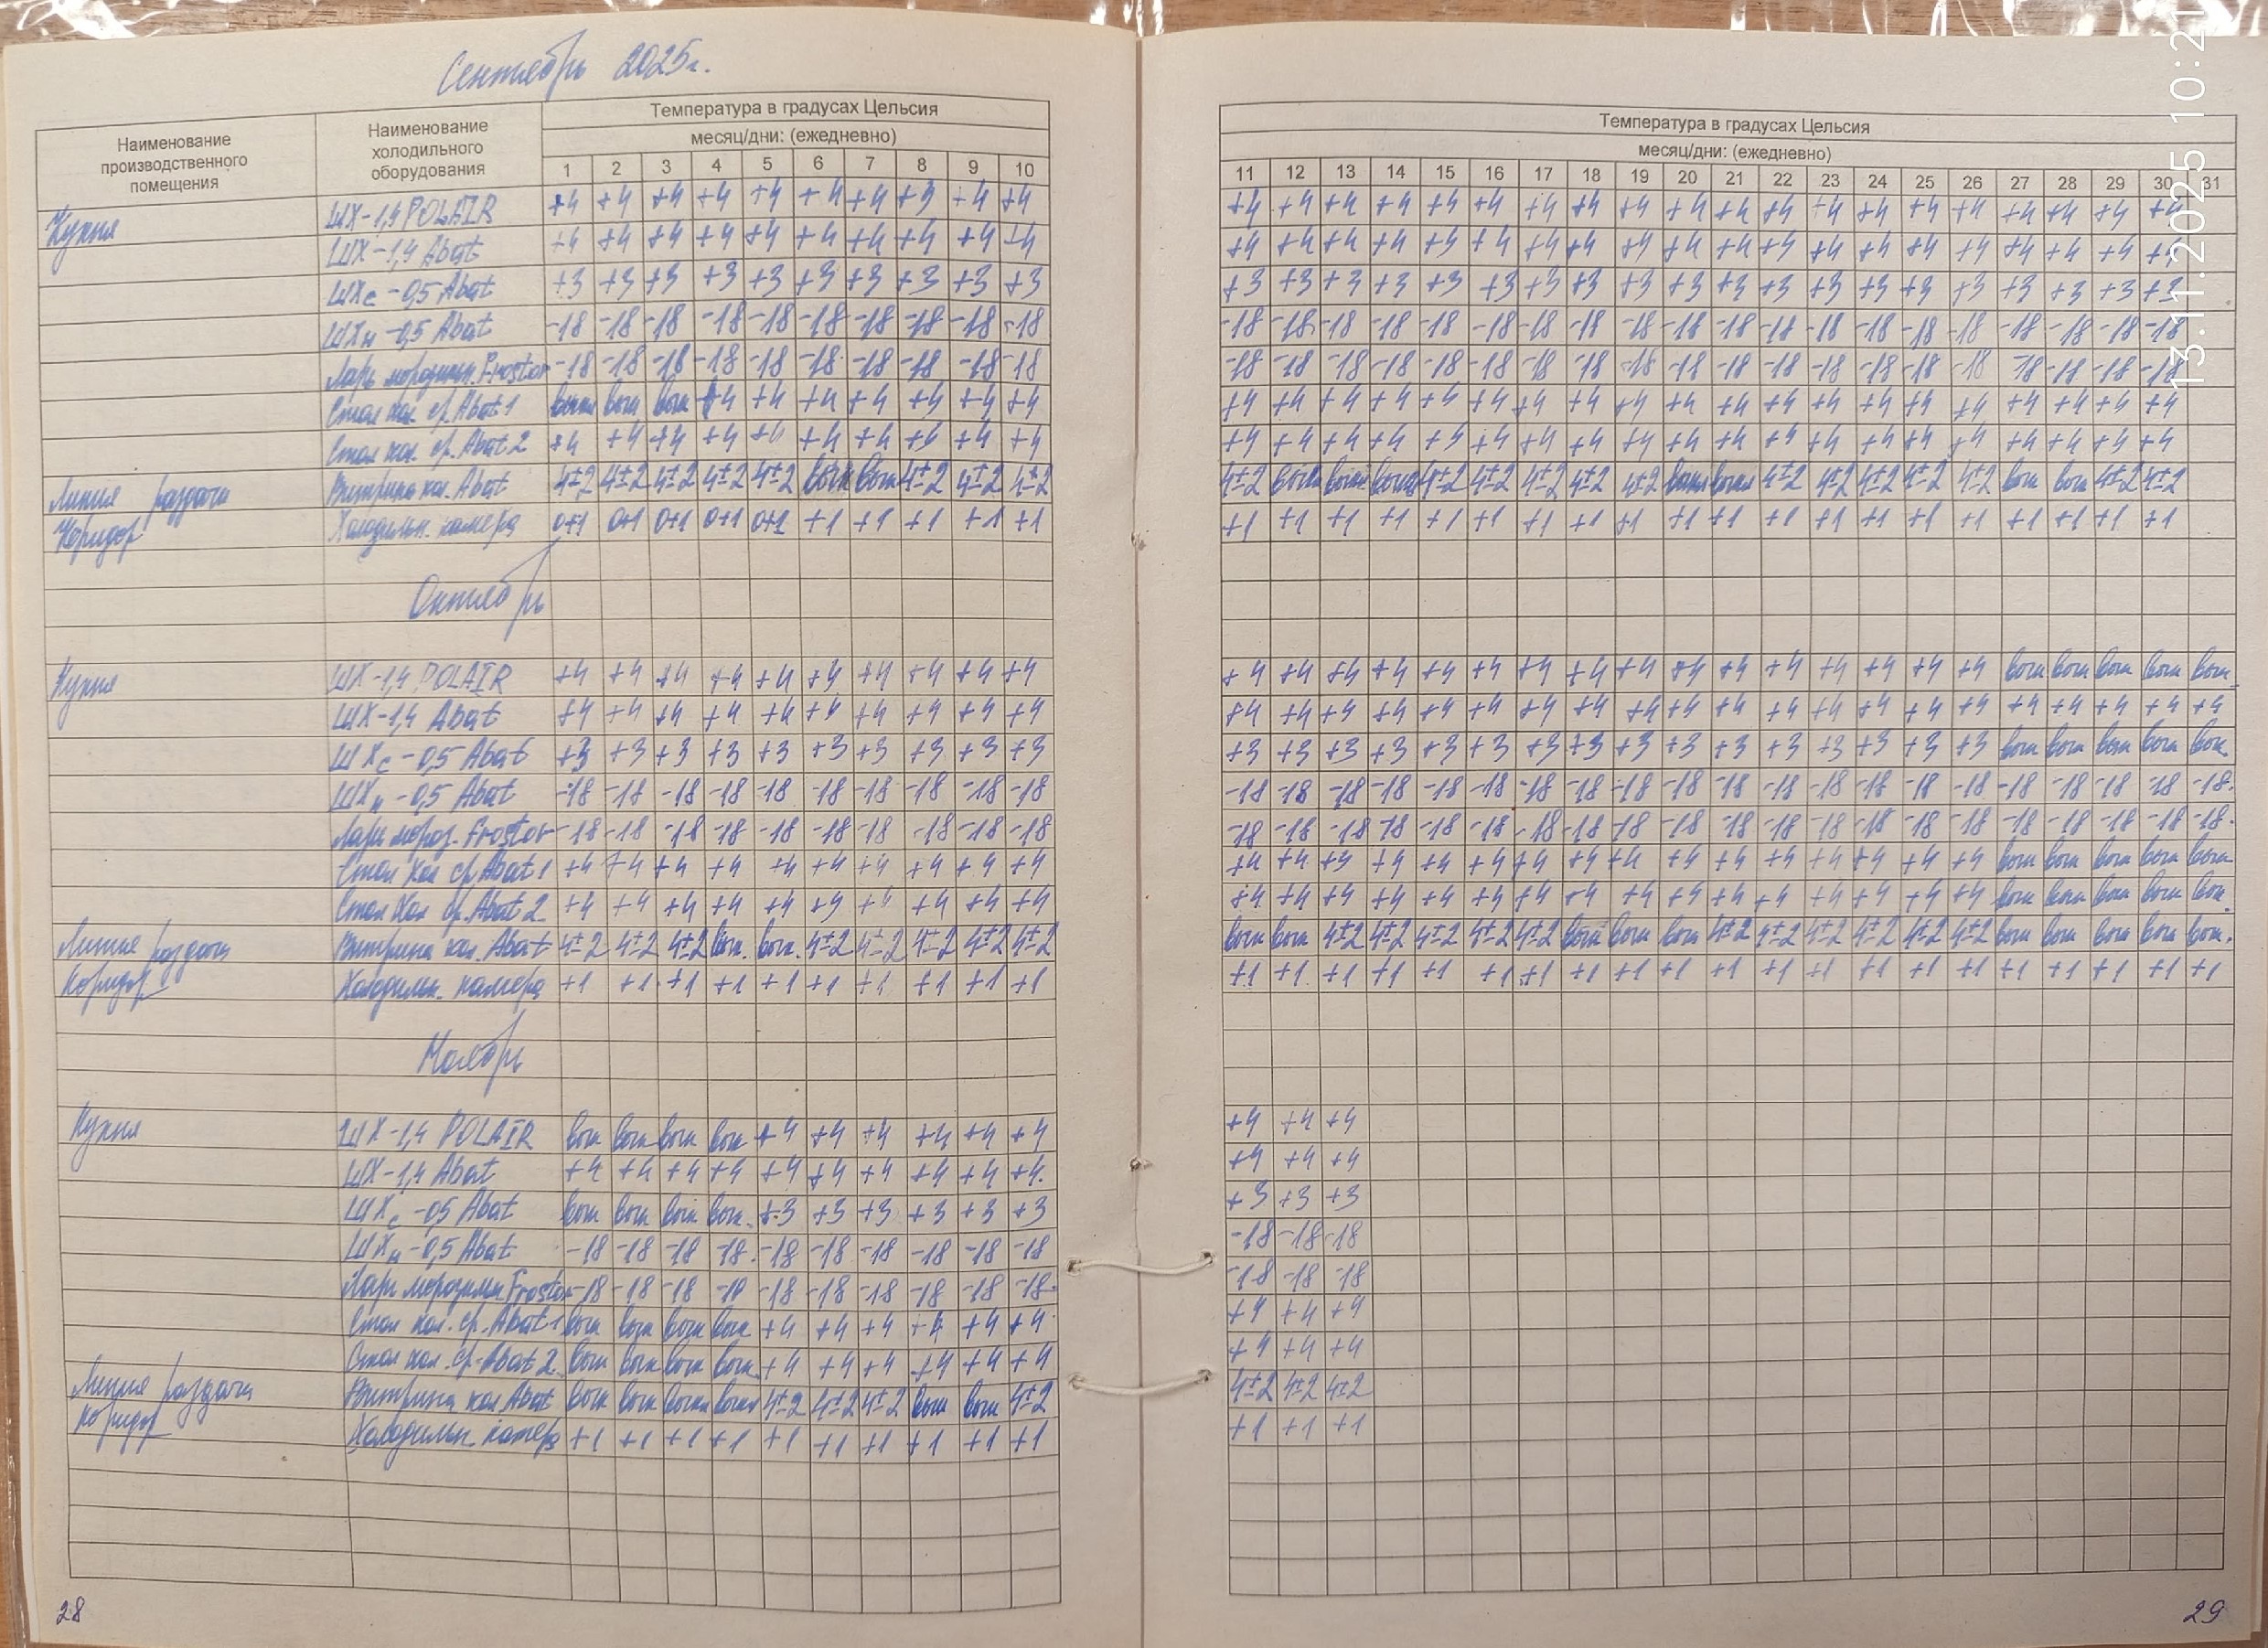 Сентябрь 2025г.
Наименование производственного помещения Наименование холодильного оборудования Температура в градусах Цельсия Температура в градусах Цельсия
месяц/дни: (ежедневно) месяц/дни: (ежедневно)
1 2 3 4 5 6 7 8 9 10 11 12 13 14 15 16 17 18 19 20 21 22 23 24 25 26 27 28 29 30 31
Кухня ШХ-1,4 POLAIR +4 +4 +4 +4 +4 +4 +4 +4 +4 +4 +4 +4 +4 +4 +4 +4 +4 +4 +4 +4 +4 +4 +4 +4 +4 +4 +4 +4 +4 +4
ШХ-1,4 Abat +4 +4 +4 +4 +4 +4 +4 +4 +4 +4 +4 +4 +4 +4 +4 +4 +4 +4 +4 +4 +4 +4 +4 +4 +4 +4 +4 +4 +4 +4
ШХс-0,5 Abat +3 +3 +3 +3 +3 +3 +3 +3 +3 +3 +3 +3 +3 +3 +3 +3 +3 +3 +3 +3 +3 +3 +3 +3 +3 +3 +3 +3 +3 +3
ШХн-0,5 Abat -18 -18 -18 -18 -18 -18 -18 -18 -18 -18 -18 -18 -18 -18 -18 -18 -18 -18 -18 -18 -18 -18 -18 -18 -18 -18 -18 -18 -18 -18
Ларь морозильн. Frostor -18 -18 -18 -18 -18 -18 -18 -18 -18 -18 -18 -18 -18 -18 -18 -18 -18 -18 -18 -18 -18 -18 -18 -18 -18 -18 -18 -18 -18 -18
Стол хол. ср. Abat 1 выкл выкл выкл +4 +4 +4 +4 +4 +4 +4 +4 +4 +4 +4 +4 +4 +4 +4 +4 +4 +4 +4 +4 +4 +4 +4 +4 +4 +4 +4
Стол хол. ср. Abat 2 +4 +4 +4 +4 +4 +4 +4 +4 +4 +4 +4 +4 +4 +4 +4 +4 +4 +4 +4 +4 +4 +4 +4 +4 +4 +4 +4 +4 +4 +4
Линия раздачи Витрина хол. Abat 4±2 4±2 4±2 4±2 4±2 выкл выкл 4±2 4±2 4±2 4±2 выкл выкл выкл 4±2 4±2 4±2 4±2 4±2 выкл выкл 4±2 4±2 4±2 4±2 4±2 выкл выкл 4±2 4±2
Коридор Холодильн. камера 0+1 0+1 0+1 0+1 0+1 +1 +1 +1 +1 +1 +1 +1 +1 +1 +1 +1 +1 +1 +1 +1 +1 +1 +1 +1 +1 +1 +1 +1 +1 +1
Октябрь
Кухня ШХ-1,4 POLAIR +4 +4 +4 +4 +4 +4 +4 +4 +4 +4 +4 +4 +4 +4 +4 +4 +4 +4 +4 +4 +4 +4 +4 +4 +4 +4 выкл выкл выкл выкл выкл
ШХ-1,4 Abat +4 +4 +4 +4 +4 +4 +4 +4 +4 +4 +4 +4 +4 +4 +4 +4 +4 +4 +4 +4 +4 +4 +4 +4 +4 +4 +4 +4 +4 +4 +4
ШХс-0,5 Abat +3 +3 +3 +3 +3 +3 +3 +3 +3 +3 +3 +3 +3 +3 +3 +3 +3 +3 +3 +3 +3 +3 +3 +3 +3 +3 выкл выкл выкл выкл выкл
ШХн-0,5 Abat -18 -18 -18 -18 -18 -18 -18 -18 -18 -18 -18 -18 -18 -18 -18 -18 -18 -18 -18 -18 -18 -18 -18 -18 -18 -18 -18 -18 -18 -18 -18.
Ларь мороз. Frostor -18 -18 -18 -18 -18 -18 -18 -18 -18 -18 -18 -18 -18 -18 -18 -18 -18 -18 -18 -18 -18 -18 -18 -18 -18 -18 -18 -18 -18 -18 -18.
Стол хол ср Abat 1 +4 +4 +4 +4 +4 +4 +4 +4 +4 +4 +4 +4 +4 +4 +4 +4 +4 +4 +4 +4 +4 +4 +4 +4 +4 +4 выкл выкл выкл выкл выкл
Стол хол ср. Abat 2 +4 +4 +4 +4 +4 +4 +4 +4 +4 +4 +4 +4 +4 +4 +4 +4 +4 +4 +4 +4 +4 +4 +4 +4 +4 +4 выкл выкл выкл выкл выкл
Линия раздачи Витрина хол. Abat 4±2 4±2 4±2 выкл. выкл. 4±2 4±2 4±2 4±2 4±2 выкл выкл 4±2 4±2 4±2 4±2 4±2 выкл выкл выкл 4±2 4±2 4±2 4±2 4±2 4±2 выкл выкл выкл выкл выкл.
Коридор Холодильн. камера +1 +1 +1 +1 +1 +1 +1 +1 +1 +1 +1 +1 +1 +1 +1 +1 +1 +1 +1 +1 +1 +1 +1 +1 +1 +1 +1 +1 +1 +1 +1
Ноябрь
Кухня ШХ-1,4 POLAIR выкл выкл выкл выкл +4 +4 +4 +4 +4 +4 +4 +4 +4
ШХ-1,4 Abat +4 +4 +4 +4 +4 +4 +4 +4 +4 +4. +4 +4 +4
ШХс-0,5 Abat выкл выкл выкл выкл. +3 +3 +3 +3 +3 +3 +3 +3 +3
ШХн-0,5 Abat -18 -18 -18 -18 -18 -18 -18 -18 -18 -18 -18 -18 -18
Ларь морозильн Frostor -18 -18 -18 -18 -18 -18 -18 -18 -18 -18. -18 -18 -18
Стол хол. ср. Abat 1 выкл выкл выкл выкл +4 +4 +4 +4 +4 +4 +4 +4 +4
Стол хол. ср. Abat 2 выкл выкл выкл выкл. +4 +4 +4 +4 +4 +4 +4 +4 +4
Линия раздачи Витрина хол Abat выкл выкл выкл выкл 4±2 4±2 4±2 выкл выкл 4±2 4±2 4±2 4±2
Коридор Холодильн. камера +1 +1 +1 +1 +1 +1 +1 +1 +1 +1 +1 +1 +1
28 29
13.11.2025 10:21